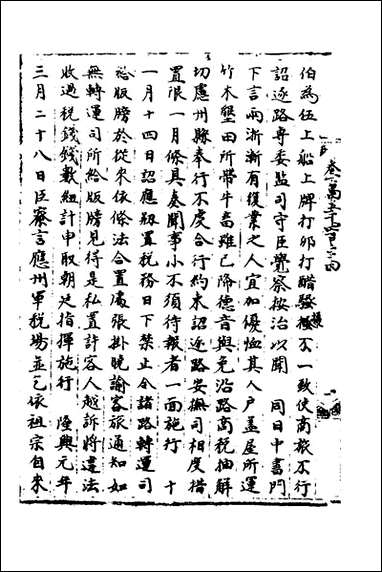 伯為伍上船上牌打卯打醋發極不一致使商旅不行
詔逐路專委監司守臣覺察按治以聞　同日中書門
下言兩淅漸有復業之人宜加優恤其人户盖屋所運
竹木墾田所帶牛畜雖已降德音與免沿路商税抽解
切慮州縣奉行不虔合行約束詔逐路安撫司相度措
置限一月條具奏聞事小不須待報者一面施行　十
一月十四日詔應瓶置税務日下禁止令諸路轉運司
給版牓於從来依條法合置處張掛曉諭客旅通知如
無轉運司所給版牓見得是私置許客人越訴將違法
收過税錢錢數紐計申取朝廷指揮施行　隆興元年
三月二十八日臣寮言應州軍税場並乞依祖宗自来